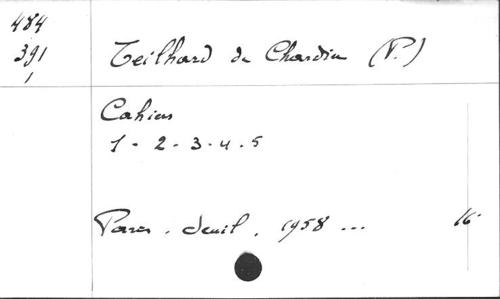 484
391
1
Teilhard de Chardin (P.)
Cahiers
1 - 2 - 3 - 4 - 5
Paris. Seuil. 1958 ... 16°